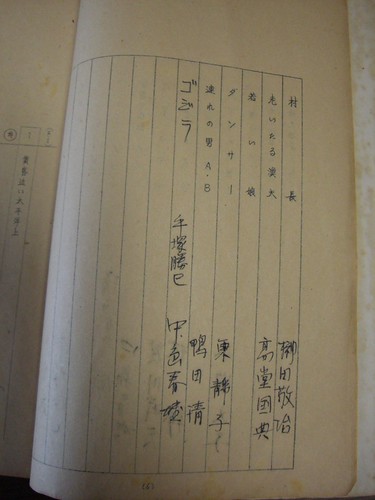 村長 榊田敬治
老いたる漁夫 高堂国典
若い娘
ダンサー 東静子
連れの男 A・B 鴨田清
ゴジラ 手塚勝巳 中島春雄
(6)